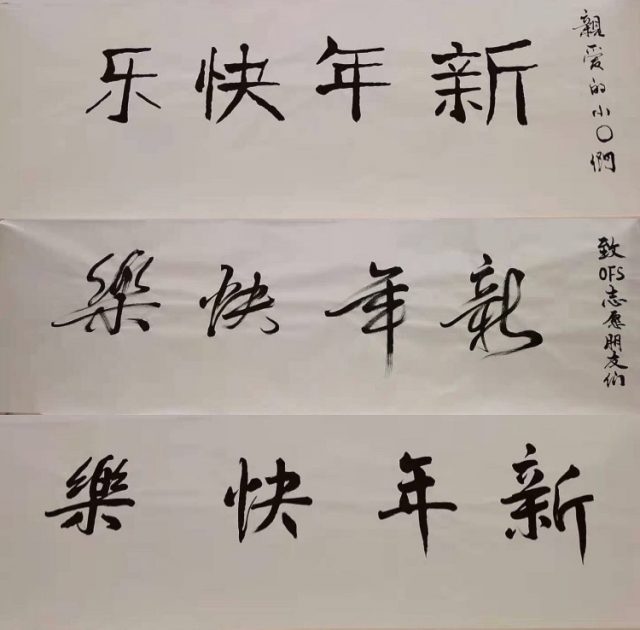 親爱的小〇們
新年快乐
致OFS志愿朋友们
新年快樂
新年快樂